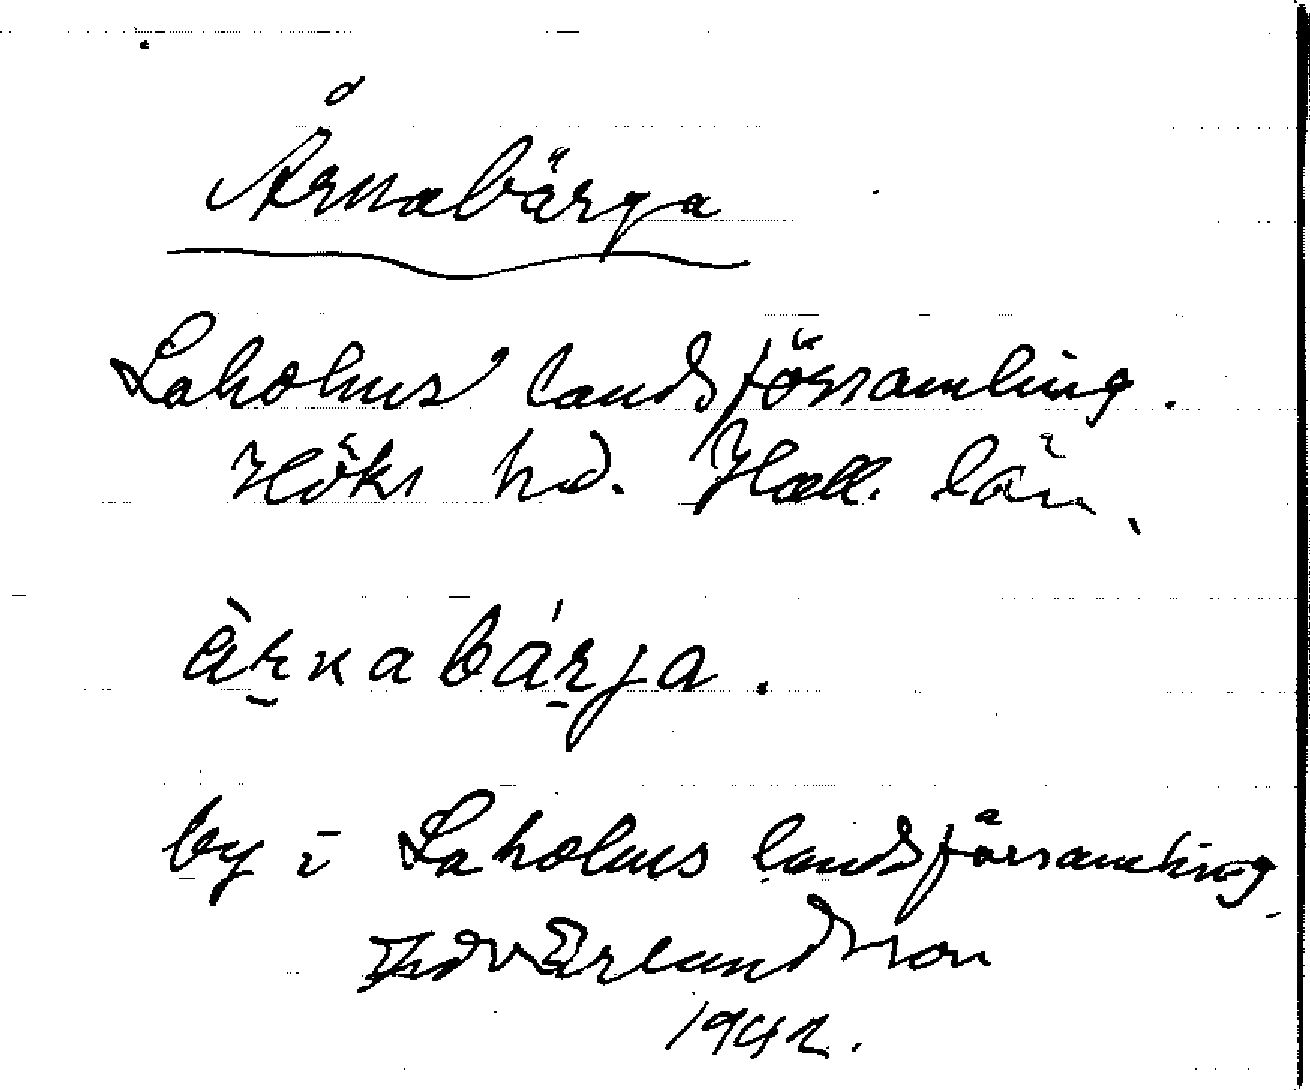 Årnabärga
Laholms landsförsamling.
Höks hd. Hall. län.
àrnabárja.
by i Laholms landsförsamling
Erlandsson
1942.